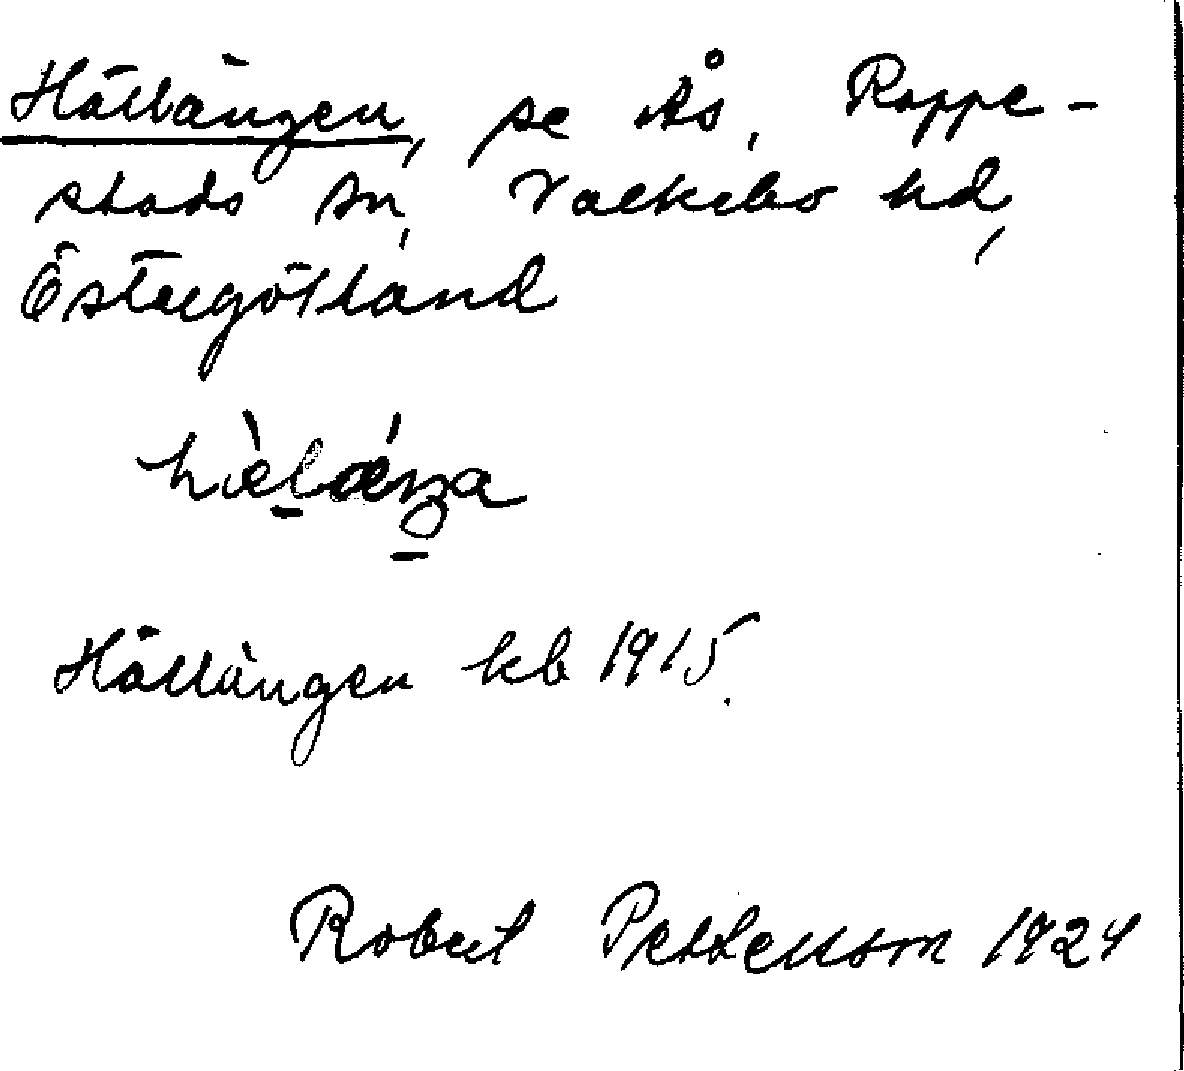 Hällängen, se Ås, Rappe-
stads sn, Valkebo hd,
Östergötland
hὰlǽŋa
Hällängen kb 1915.
Robert Pettersson 1924